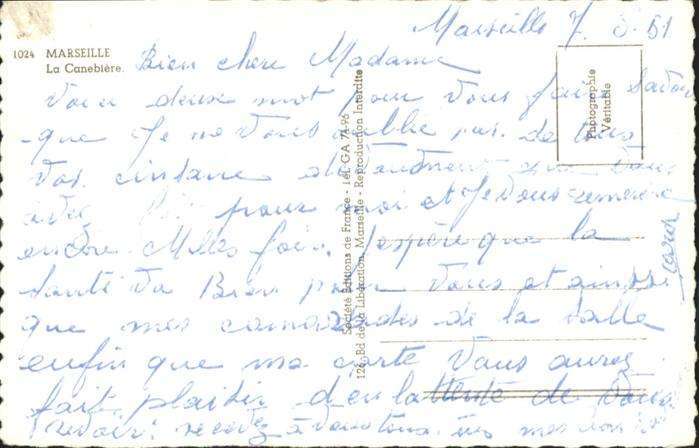 Marseille 7. 8. 51
1024 MARSEILLE
La Canebière.
Bien chere Madame
Voici deux mot pour Vous faire Savoir
que Je ne Vous oublie pas de tous
Vos
pour moi et Je vous remercie
encore Milles fois. J'espère que la
Santé Va Bien pour Vous et ainssi
que mes camarades de la Salle
enfin que ma carte Vous aurez
fait plaisir d'en lattente de Vous
revoir. recevez
Société Editions de France - Tél. GA 74-96
126, Bd de la Libération, Marseille - Reproduction Interdite
Photographie
Véritable